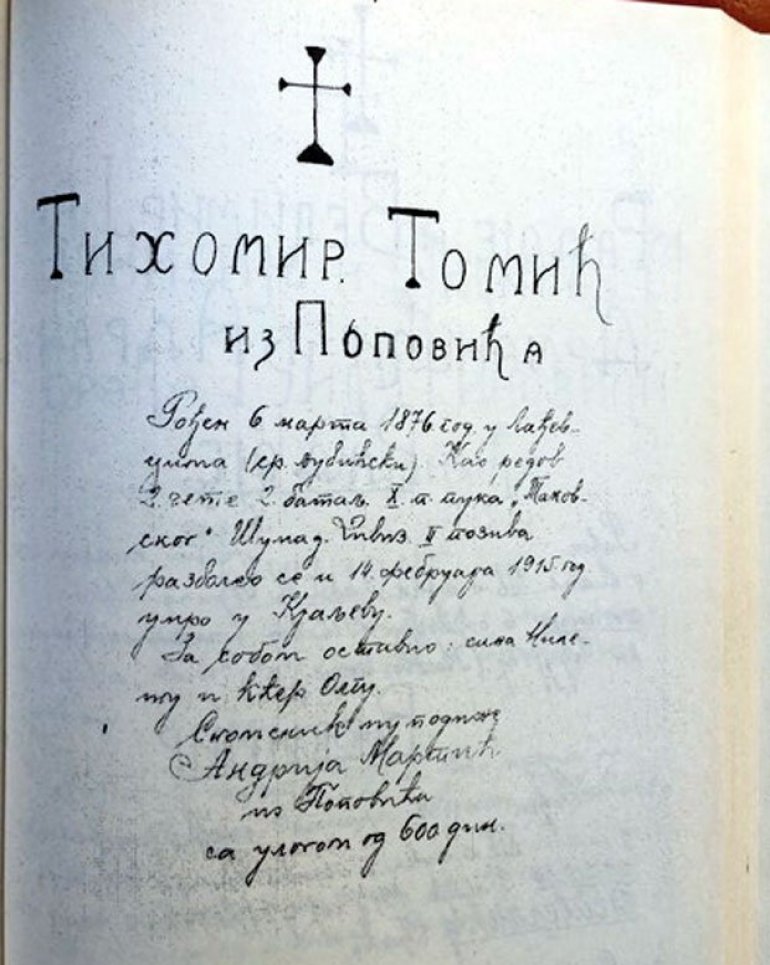 Тихомир Томић
из Поповића
Рођен 6 марта 1876 год. у Лађев-
цима (ср. љубићски). Као редов
2. чете 2. батаљ. X п. пука „Таков-
ског“ Шумад. дивиз. II позива
разболео се и 14. фебруара 1915. год.
умро у Краљеву.
За собом оставио: сина Миле-
ту и кћер Олгу.
Спомсник му подиже
Андрија Мартић
из Поповића
са улогом од 600 дин.